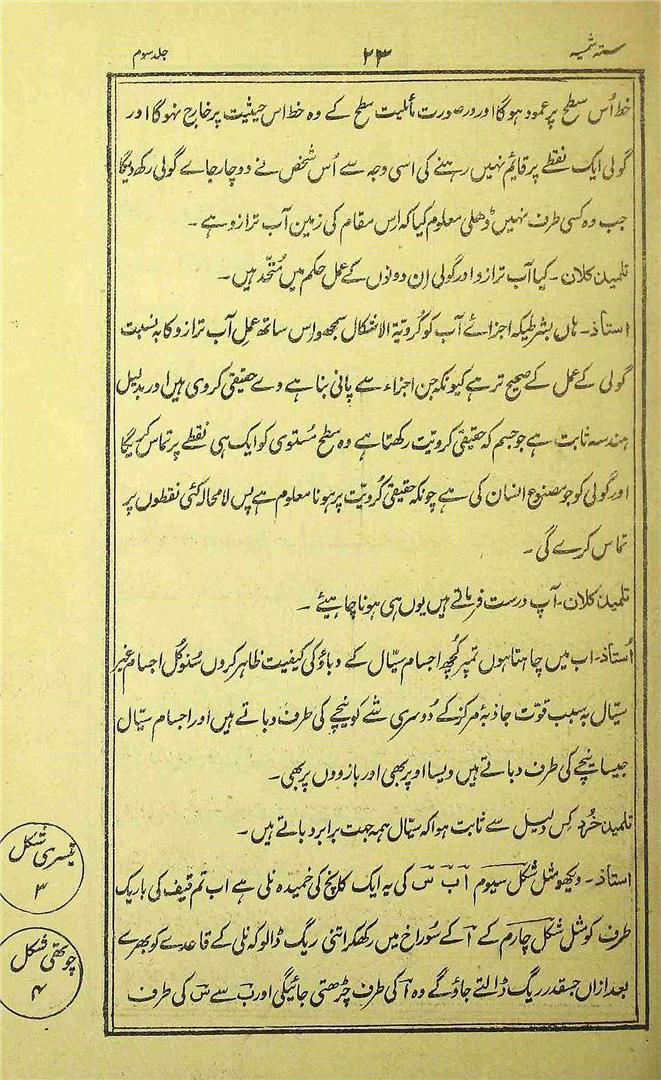 ستہ شمسیہ
۲۳
جلد سوم
خط اُس سطح پر عمود ہوگا اور در صورت مائلیت سطح کے وہ خط اس حیثیت پر خارج نہوگا اور
گولی ایک نقطے پر قایٔم نہیں رہنے کی اسی وجہ سے اُس شخص نے دو چار جاے گولی رکھ دیگا
جب وہ کسی طرف نہیں ڈھلی معلوم کیا کہ اس مقام کی زمین آب ترازو ہے ۔
تلمیذ کلان ۔ کیا آب ترازو اور گولی اِن دونوں کے عمل حکم میں مُتّحد ہیں ۔
استاذ ۔ ہاں بشرطیکہ اجزائے آب کو کُرویّۃ الاشکال سمجھو اس ساتھ عمل آب ترازو کا بہ نسبت
گولی کے عمل کے صحیح تر ہے کیونکہ جن اجزاء سے پانی بنا ہے وے حقیقی کروی ہیں اور بدلیل
ہندسہ ثابت ہے جو جسم کہ حقیقی کرویّت رکھتا ہے وہ سطح مُستوی کو ایک ہی نقطے پر تماس کریگا
اور گولی کو جو مصنوع انسان کی ہے چونکہ حقیقی کُرویّت پر ہونا معلوم ہے پس لامحالہ کئی نقطوں پر
تماس کرے گی ۔
تلمیذ کلان ۔ آپ درست فرماتے ہیں یوں ہی ہونا چاہیٔے ۔
اُستاذ ۔ اب میں چاہتا ہوں تمپر کُچھ اجسام سیّال کے دباؤ کی کیفیت ظاہر کروں سُنو کُل اجسام غیر
سیّال بہ سبب قوّت جاذبۂ مرکز کے دُوسری شے کو نیچے کی طرف دباتے ہیں اور اجسام سیّال
جیسا نیچے کی طرف دباتے ہیں ویسا اوپر بھی اور بازووں پر بھی ۔
تلمیذ خُرد کِس دلیل سے ثابت ہوا کہ سیّال ہمہ جہت برابر دباتے ہیں ۔
استاذ ۔ دیکھو مثل شکل سیوم آ ب س کی یہ ایک کانچ کی خمیدہ نلی ہے اب تم قیف کی باریک
طرف کو مثل شکل چارم کے آ کے سُوراخ میں رکھکر اتنی ریگ ڈالو کہ نلی کے قاعدے کو بھرے
بعد ازاں جسقدر ریگ ڈالتے جاؤگے وہ آ کی طرف چڑھتی جائیگی اور ب سے س کی طرف
تیسری شکل
۳
چوتھی شکل
۴